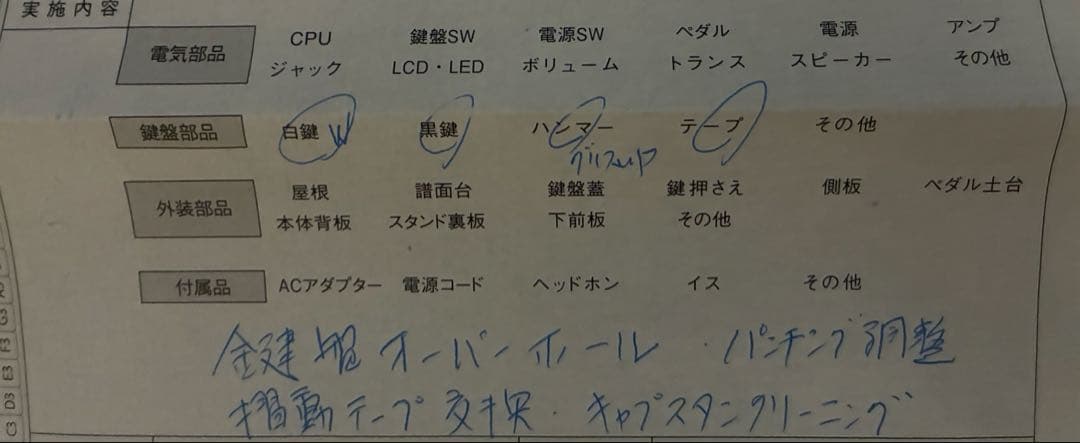 実施内容
電気部品 CPU 鍵盤SW 電源SW ペダル 電源 アンプ
ジャック LCD・LED ボリューム トランス スピーカー その他
鍵盤部品 白鍵 W 黒鍵 ハンマー テープ その他
外装部品 屋根 譜面台 鍵盤蓋 鍵押さえ 側板 ペダル土台
本体背板 スタンド裏板 下前板 その他
付属品 ACアダプター 電源コード ヘッドホン イス その他
鍵盤オーバーホール・パンチング調整
摺動テープ交換・キャプスタンクリーニング
G3
F3
E3
D3
C3